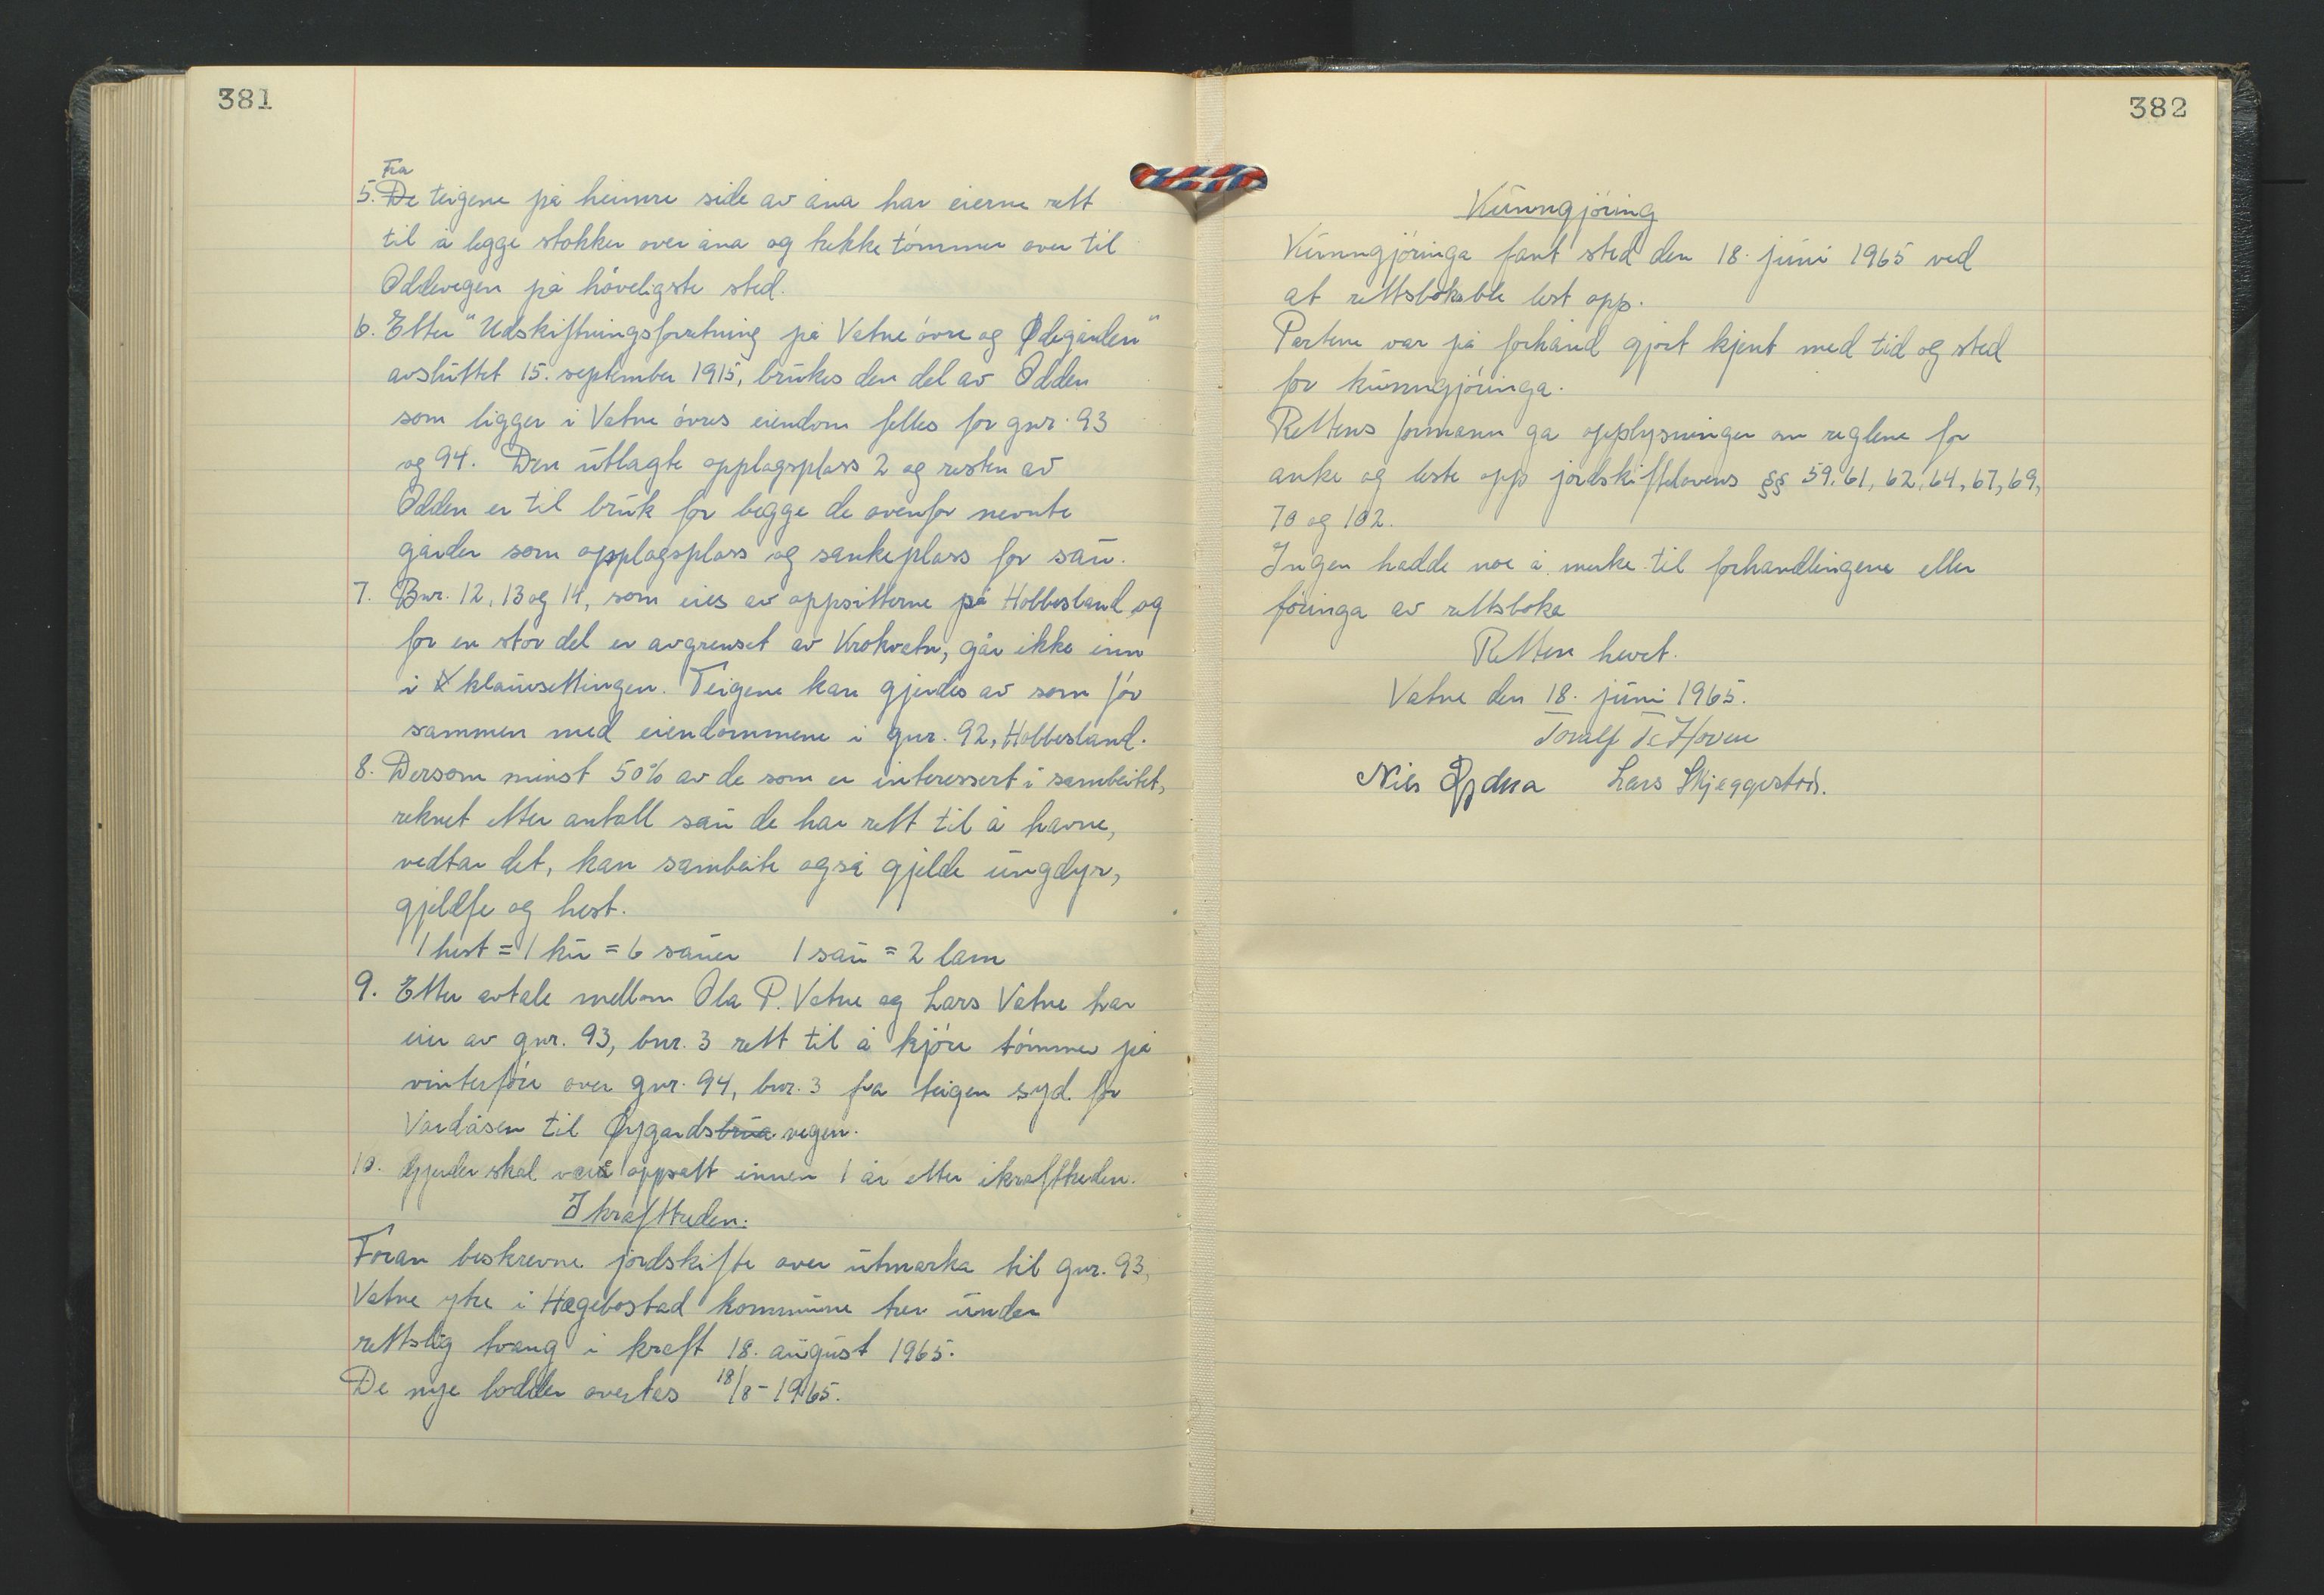 381
Fra
5. De teigene på heimre side av åna har eierne rett
til å legge stokker over åna og trekke tømmer over til
Oddevegen på høveligste sted.
6. Etter "Udskiftningsforretning på Vatne øvre og Ødegården"
avsluttet 15. september 1915, brukes den del av Odden
som ligger i Vatne øvres eiendom felles for gnr. 93
og 94. Den utlagte opplagsplass 2 og resten av
Odden er til bruk for begge de ovenfor nevnte
gårder som opplagsplass og sankeplass for sau.
7. Bnr. 12, 13 og 14, som eies av oppsitterne på Hobbesland og
for en stor del er avgrenset av Krokvatn, går ikke inn
i klauvsettingen. Teigene kan gjerdes av som før
sammen med eiendommene i gnr. 92, Hobbesland.
8. Dersom minst 50% av de som er interessert i sambeitet,
reknet etter antall sau de har rett til å havne,
vedtar det, kan sambeite også gjelde ungdyr,
gjeldfe og hest.
1 hest = 1 ku = 6 sauer 1 sau = 2 lam
9. Etter avtale mellom Ola P. Vatne og Lars Vatne har
eier av gnr. 93, bnr. 3 rett til å kjøre tømmer på
vinterføre over gnr. 94, bnr. 3 fra teigen syd for
Vardåsen til Øygardsbrua vegen.
10. Gjerder skal være oppsatt innen 1 år etter ikrafttreden.
Ikrafttreden.
Foran beskrevne jordskifte over utmarka til gnr. 93,
Vatne ytre i Hægebostad kommune trer under
rettslig tvang i kraft 18. august 1965.
De nye lodder overtas 18/8-1965.
382
Kunngjøring
Kunngjøringa fant sted den 18. juni 1965 ved
at rettsboka ble lest opp.
Partene var på forhånd gjort kjent med tid og sted
for kunngjøringa.
Rettens formann ga opplysninger om reglene for
anke og leste opp jordskiftelovens §§ 59, 61, 62, 64, 67, 69,
70 og 102.
Ingen hadde noe å merke til forhandlingene eller
føringa av rettsboka
Retten hevet.
Vatne den 18. juni 1965.
Toralf T. Hoven
Nils Lars Skjeggestad.